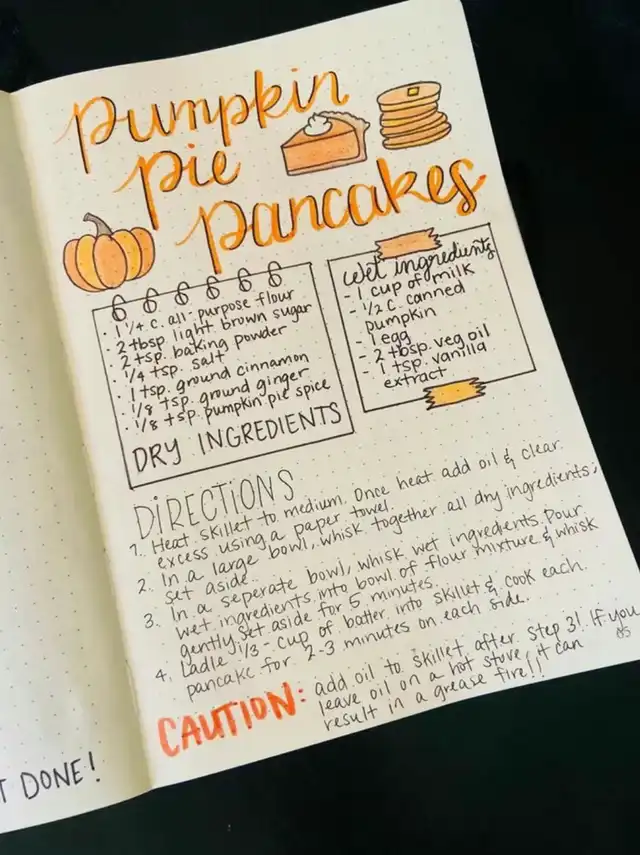 pumpkin
pie
pancakes
· 1 1/4 c. all-purpose flour
· 2 tbsp. light brown sugar
· 2 tsp. baking powder
· 1/4 tsp. salt
· 1 tsp. ground cinnamon
· 1/8 tsp. ground ginger
· 1/8 tsp. pumpkin pie spice
DRY INGREDIENTS
wet ingredients
- 1 cup of milk
- 1/2 c. canned
pumpkin
- 1 egg
- 2 tbsp. veg oil
- 1 tsp. vanilla
extract
DIRECTIONS
1. Heat skillet to medium. Once heat add oil & clear
excess using a paper towel.
2. In a large bowl, whisk together all dry ingredients;
set aside.
3. In a seperate bowl, whisk wet ingredients. Pour
wet ingredients into bowl of flour mixture & whisk
gently. Set aside for 5 minutes.
4. Ladle 1/3-cup of batter into skillet & cook each
pancake for 2-3 minutes on each side.
CAUTION: add oil to skillet after step 3! If you
leave oil on a hot stove, it can
result in a grease fire!!
T DONE!